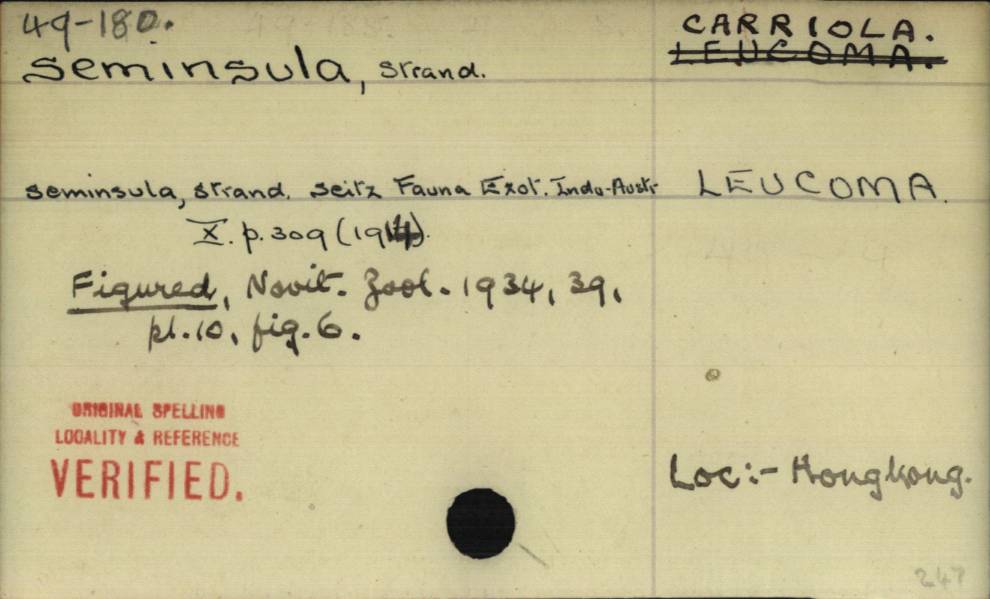 49-180.
CARRIOLA.
LEUCOMA.
seminsula, Strand.
seminsula, Strand. Seitz Fauna Exot. Indo-Austr LEUCOMA.
X. p. 309 (1914).
Figured, Novit. Zool. 1934, 39,
pl. 10, fig. 6.
ORIGINAL SPELLING
LOCALITY & REFERENCE
VERIFIED.
Loc:- Hongkong.